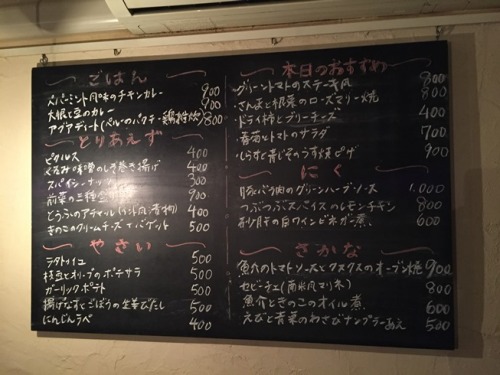 ごはん
ペパーミント風味のチキンカレー 900
大根と豆のカレー 900
アグアデード(ペルーのパクチー鶏雑炊) 800
とりあえず
ピクルス 400
くるみ味噌のしぎ巻き揚げ 400
スパイシーナッツ 300
前菜の三種盛 900
とうふのアチャール(インド風漬物) 400
きのこのクリームチーズ バゲット 500
やさい
ラタトゥイユ 500
枝豆とオリーブのポテサラ 500
ガーリックポテト 500
揚げなすとごぼうの生姜びたし 500
にんじんラペ 400
本日のおすすめ
グリーントマトのステーキ風 800
さんまと根菜のローズマリー焼 800
ドライ柿とブリーチーズ 400
春菊とトマトのサラダ 700
しらすと青じそのうす焼ピザ 900
にく
豚バラ肉のグリーンハーブソース 1,000
つぶつぶスパイスのレモンチキン 800
砂肝の白ワインビネガー煮 600
さかな
魚介のトマトソースとクスクスのオーブン焼 900
セビーチェ(南米風マリネ) 800
魚介ときのこのオイル煮 600
えびと青菜のわさびナンプラーあえ 500